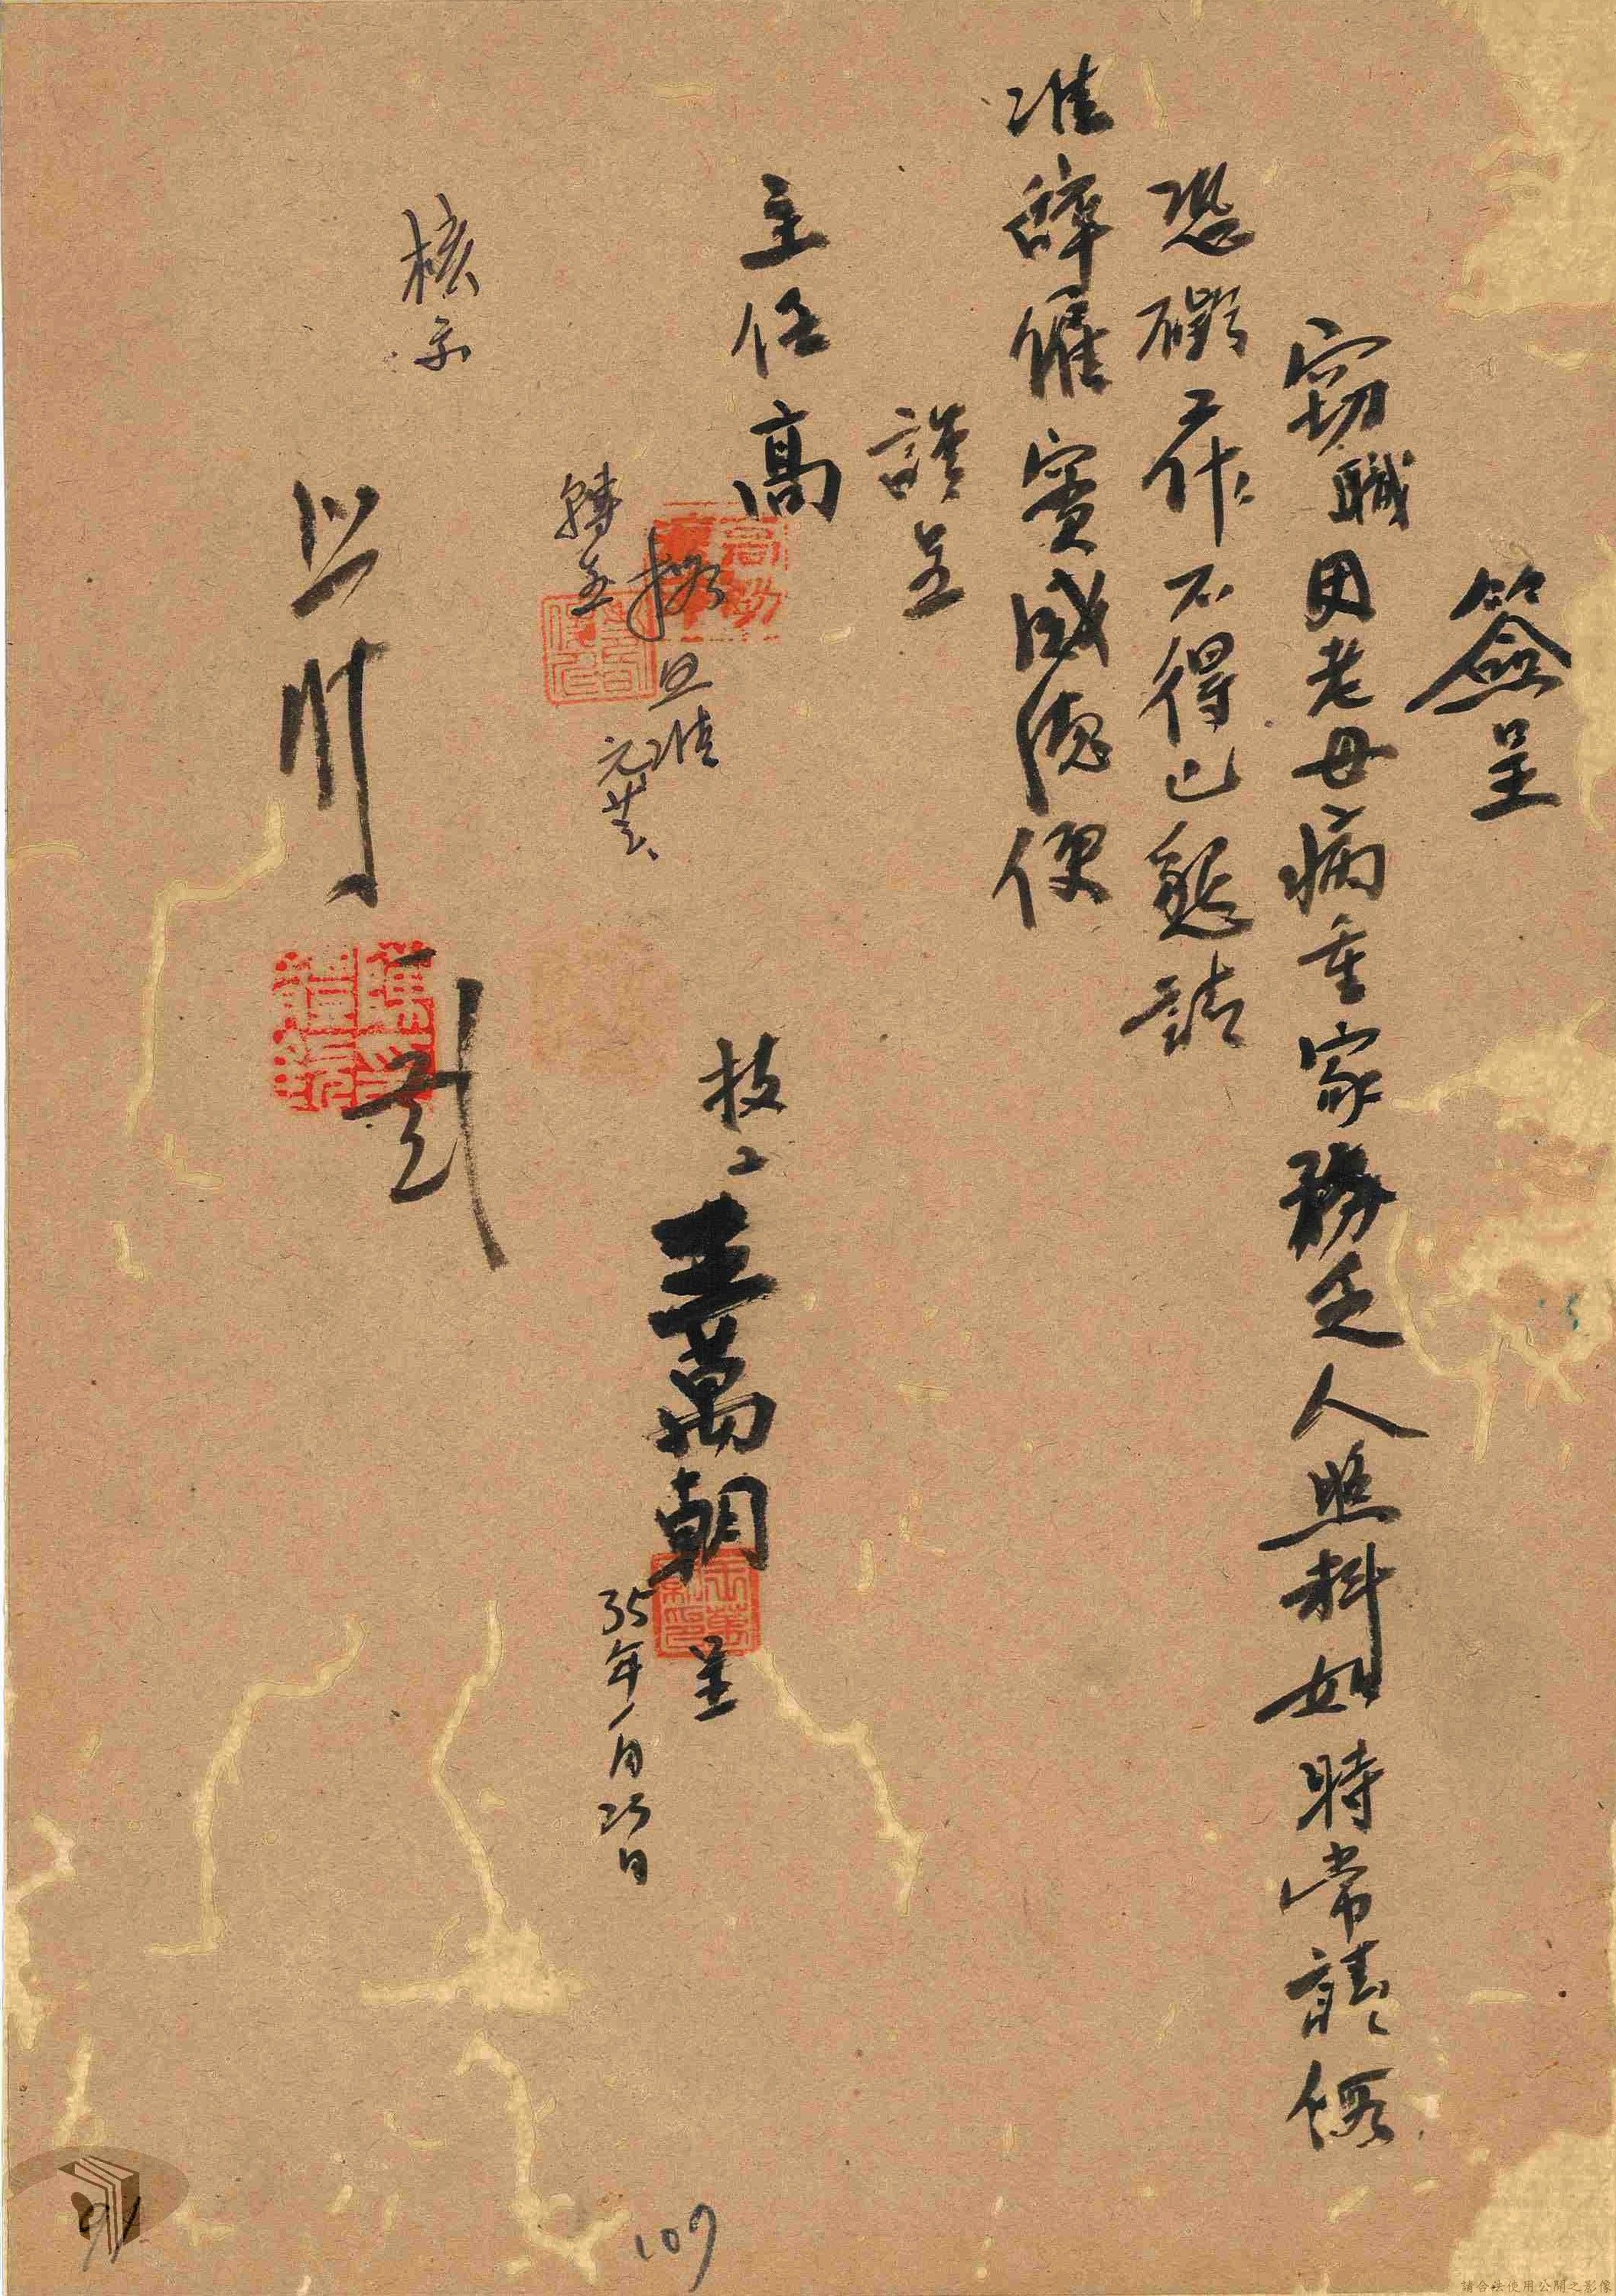 簽呈
窃職因老母病重家務乏人照料如時常請假
恐礙工作不得已懇請
准辞僱實感德便
謹呈
主任高
技工王萬朝呈
35年1月25日
擬照准
轉呈
核示
109
請合法使用公開之影像